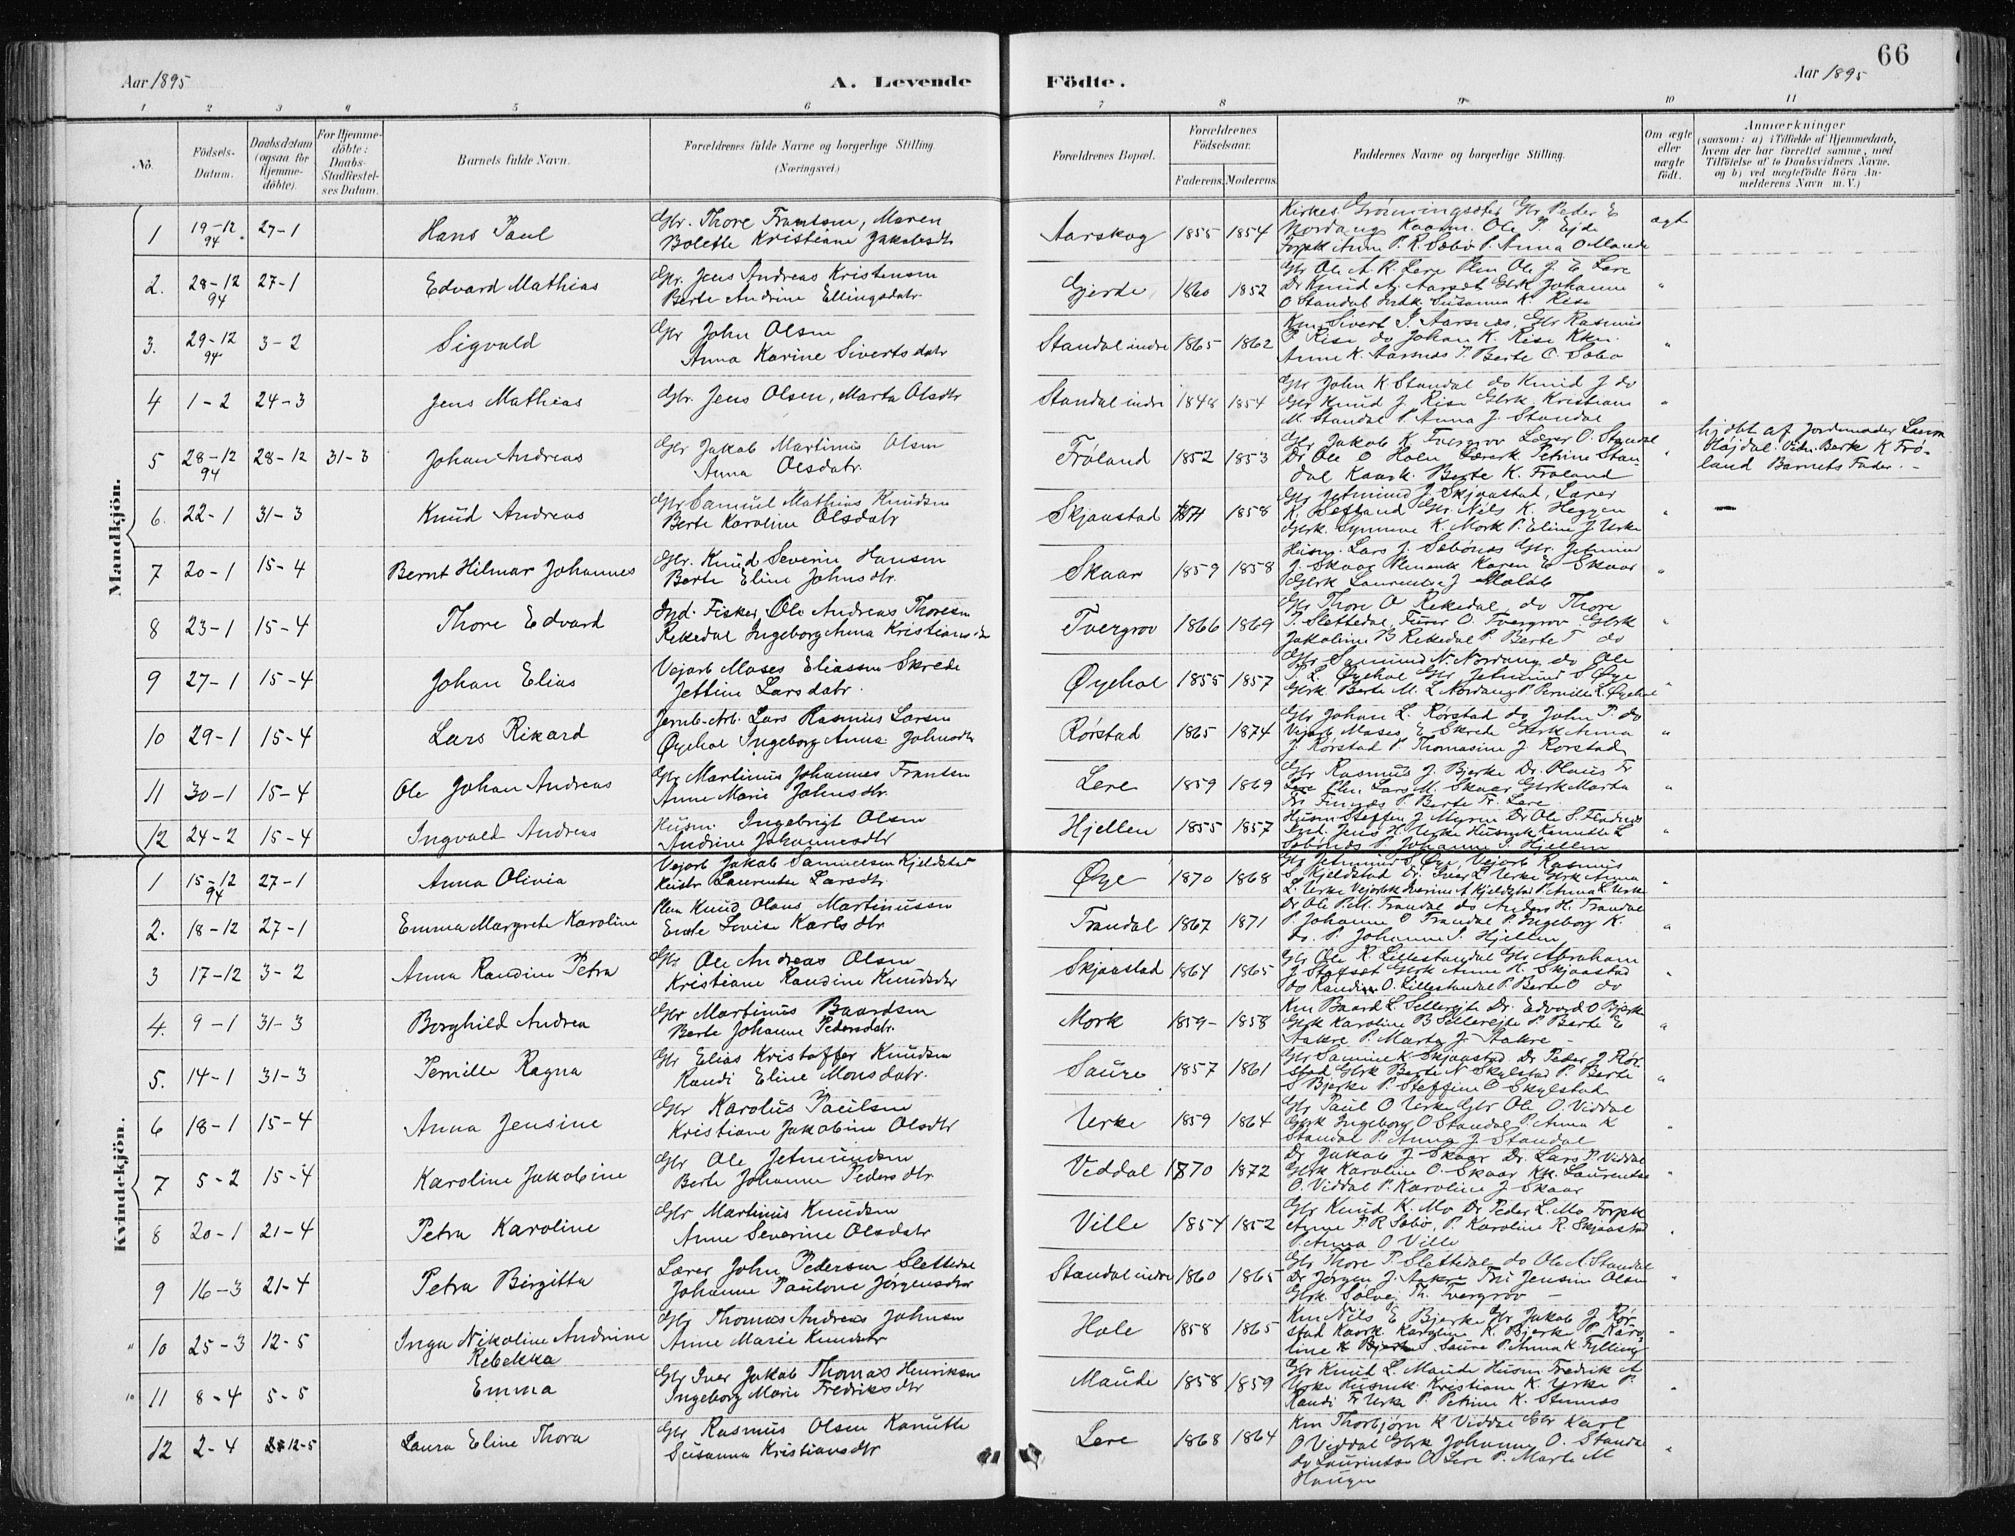 66
Aar 1895
A. Levende Födte.
Aar 1895
1 2 3 4 5 6 7 8 9 10 11
No.
Födsels-Datum.
Daabsdatum (ogsaa for Hjemme-döbte).
For Hjemme-döbte: Daabs-Stadfæstel-ses Datum.
Barnets fulde Navn.
Forældrenes fulde Navne og borgerlige Stilling. (Næringsvei.)
Forældrenes Bopæl.
Forældrenes Födselsaar.
Faderens. Moderens.
Faddernes Navne og borgerlige Stilling.
Om ægte eller uægte födt.
Anmærkninger
(saasom: a) i Tilfælde af Hjemmedaab, hvem der har forrettet samme, med Tilföielse af to Daabsvidners Navne, og b) ved uægtefödte Börn An-melderens Navn m. V.)
Mandkjön.
1 19-12 94 27-1 Hans Paul Gbr. Thore Frantsen, Maren Bolette Kristiane Jakobsdtr Aarskog 1855 1854 Gbr Peder E Nordang Ole P. Eide Anna O Maude ægte
2. 28-12 94 27-1 Edvard Mathias Gbr. Jens Andreas Kristensen Berte Andrine Ellingsdatr Gjerde 1860 1852 Gbr Ole A. R. Lere Plm Ole J. E Lere Dr Knud Gbrk Johanne O Standal Susanna K. Rise "
3. 29-12 94 3-2 Sigvald Gbr John Olsen Anna Karine Sivertsdatr Standal indre 1865 1862 Km Sivert J. Aarsnæs, Gbr Rasmus P. Rise do Johan K. Rise Anne K. Aarsnæs P. Berte O. Sæbø "
4 1-2 24-3 Jens Mathias Gbr. Jens Olsen, Marta Olsdtr Standal indre 1848 1854 Gbr John K Standal do Knud J do Gbr Knud J. Rise Gbrk. Kristiane M. Standal P. Anna J. Standal "
5 28-12 94 28-12 31-3 Johan Andreas Gbr Jakob Martinus Olsen Anna Olsdatr. Frøland 1852 1853 Gbr Jakob K Tvergrov Lærer O. Standal Dr Ole O Holen Lærerk Petrine Stan-dal Berte K. Frøland " hjdbt af Jordemoder Højdal. Vidn. Berte K Frø-land Barnets Fader. -
6. 22-1 31-3 Knud Andreas Gbr Samuel Mathias Knudsen Berte Karoline Olsdatr Skjaastad 1871 1858 Gbr Jetmund J. Skjaastad, Lærer Gbr. Nils K. Heggen Gbrk. Synnøve K. Mork P. Eline J Urke " -
7 20-1 15-4 Bernt Hilmar Johannes Gbr. Knud Severin Hansen Berte Eline Johnsdtr. Skaar 1859 1858 Husm. Lars J. Sæbønes Gbr. Jetmund J. Skaar Karen E Skaar Gbrk Laurentse J "
8 23-1 15-4 Thore Edvard Ind. Fisker Ole Andreas Thoresen Rekedal Ingeborg Anna Kristians Tvergrov 1866 1869 Gbr Thore O Rekedal, do Thore P. Slettedal, O. Tvergrov Gbrk Jakobine B Rekedal P. Berte T do
9 27-1 15-4 Johan Elias Vejarb Moses Eliassen Skrede Jettine Larsdatr. Øyehol 1855 1857 Gbr Samund N. Nordang do Ole P. L. Øyehol Gbr Jetmund S Øye Gbrk Berte M. L Nordang P. Pernille L. Øyehol "
10 29-1 15-4 Lars Rikard Jernb.-Arb. Lars Rasmus Larsen Øyehol Ingeborg Anna Johnsdtr Rørstad 1865 1874 Gbr Johan L. Rørstad do John P. do Vejarb Moses E Skrede Gbrk Anna J. Rørstad P. Thomasine J. Rørstad "
11 30-1 15-4 Ole Johan Andreas Gbr Martinus Johannes Frantsen Anne Marie Johnsdtr. Lere 1859 1869 Gbr Rasmus J. Bjerke Dr. Klaus Fr Lere Plm Lars M. Skaar Gbrk Marta P. Berte Fr. Lere "
12 24-2 15-4 Ingvald Andreas Husm. Ingebrigt Olsen Andrine Johannesdtr Hjellen 1855 1857 Husm Steffen J. Myren Dr Ole S. Jens H. Urke Husmk Kanutte L Sæbønes P. Johanne S. Hjellen "
Kvindekjön.
1 15-12 94 27-1 Anna Olivia Vejarb Jakob Samuelsen Kjeldstad Laurentse Larsdtr Øye 1870 1868 Gbr Jetmund S. Øye, Vejarb Rasmus S Kjeldstad Dr. Iver L Urke Gbrk Anna L. Urke P. Anna L. Urke "
2. 18-12 27-1 Emma Margrete Karoline Plm Knud Olaus Martinussen Emte Lovise Karlsdtr. Trandal 1867 1871 Dr Ole P. M. Trandal do Anders H. Trandal P. Johanne O Trandal P. Ingeborg K. do. P. Johanne S. Hjellen "
3 17-12 3-2 Anna Randine Petra Gbr Ole Andreas Olsen Kristiane Randine Knudsdtr Skjaastad 1864 1865 Gbr Ole R. Lillestandal Gbr Abraham J Gbrk Anne K. Skjaastad do Randine O. Lillestandal P. Berte O do "
4. 9-1 31-3 Borghild Andrea Gbr Martinus Baardsen Berte Johanne Pedersdtr. Mork 1859- 1858 Km Baard L Sellereite Dr. Edvard O Bjerke Gbrk Karoline B Sellereite P. Berte E Aakre P. Marta J Aakre - "
5. 14-1 31-3 Pernille Ragna Gbr Elias Kristoffer Knudsen Randi Eline Monsdatr. Saure 1857 1861 Gbr Samuel K Skjaastad Dr Peder J. Rør-stad Gbrk Berte N Skylstad P. Berte S Bjerke P. Steffine O Skylstad "
6 18-1 15-4 Anna Jensine Gbr Karolus Paulsen Kristiane Jakobine Olsdtr Urke 1859 1864 Gbr Paul O Urke Gbr Ole O. Viddal Gbrk Ingeborg O Standal P. Anna K Standal P. Anna J Standal "
7 5-2 15-4 Karoline Jakobine Gbr Ole Jetmundsen Berte Johanne Pedersdtr. Viddal 1870 1872 Dr Jakob J Skaar Dr. Lars P. Viddal Gbrk Karoline O. Skaar Kk. Laurentse O. Viddal P. Karoline J Skaar "
8 20-1 21-4 Petra Karoline Gbr Martinus Knudsen Anne Severine Olsdatr Ville 1854 1852 Gbr Knud K. Mo Dr Peder L. Mo Forpk Anne P. R Sæbø, P. Karoline R. Skjaastad P. Anna O Ville "
9 16-3 21-4 Petra Birgitta Lærer John Pedersen Slettedal Johanne Paulone Jørgensdtr Standal indre 1860 1865 Gbr Thore P. Slettedal do Ole A. Standal Dr Jørgen J. Aakre Jensine Olsen Gbrk. Solvei Th. Tvergrov - "
" 10 25-3 12-5 Inga Nikoline Andrine Rebekka Gbr Thomas Andreas Johnsen Anne Marie Knudsdtr Hole 1858 1865 Km Nils E Bjerke Gbr Jakob J Rør-stad Kaark. Karoline K. Bjerke P Karo-line K Saure P. Anna K Fylling "
" 11 8-4 5-5 Emma Gbr Iver Jakob Thomas Henriksen Ingeborg Marie Fredriksdtr Maude 1858 1859 Gbr Knut L. Maude Husm. Fredrik A Urke Husmk. Kristiane K. Urke P. Randi Fr Urke P. Petrine K. Stennes "
12 2-4 12-5 Laura Eline Thora Gbr Rasmus Olsen Kanutte Susanna Kristiansdtr Lere 1868 1864 Km Thorbjørn K Viddal Gbr Karl O Viddal Gbrk Johanne O. Standal do Laurintse O Lere P. Marte M Haugen "